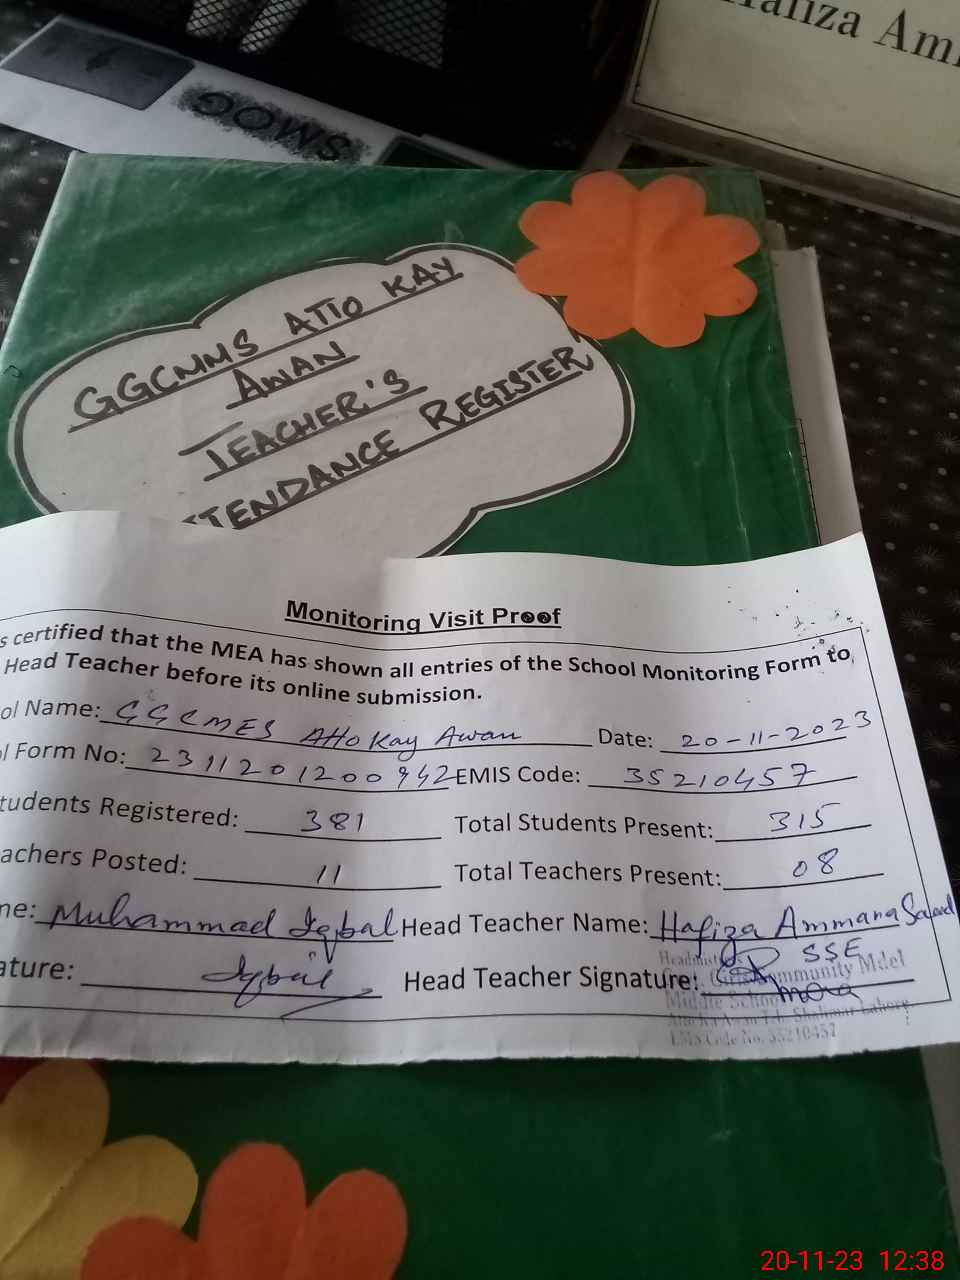 Hafiza Am
SMOG
GGCMMS ATTO KAY
AWAN
TEACHER'S
TTENDANCE REGISTER
Monitoring Visit Proof
s certified that the MEA has shown all entries of the School Monitoring Form to
Head Teacher before its online submission.
ol Name: GGCMES Atto Kay Awan Date: 20-11-2023
l Form No: 2311201200942 EMIS Code: 35210457
tudents Registered: 381 Total Students Present: 315
achers Posted: 11 Total Teachers Present: 08
me: Muhammad Iqbal Head Teacher Name: Hafiza Ammara Saeed
SSE
ature: Iqbal Head Teacher Signature:
Headmist
Girls Community Mdel
Middle School
Atto Ka Awan Teh. Shalimar Lahore
EMS Code No. 35210457
20-11-23 12:38